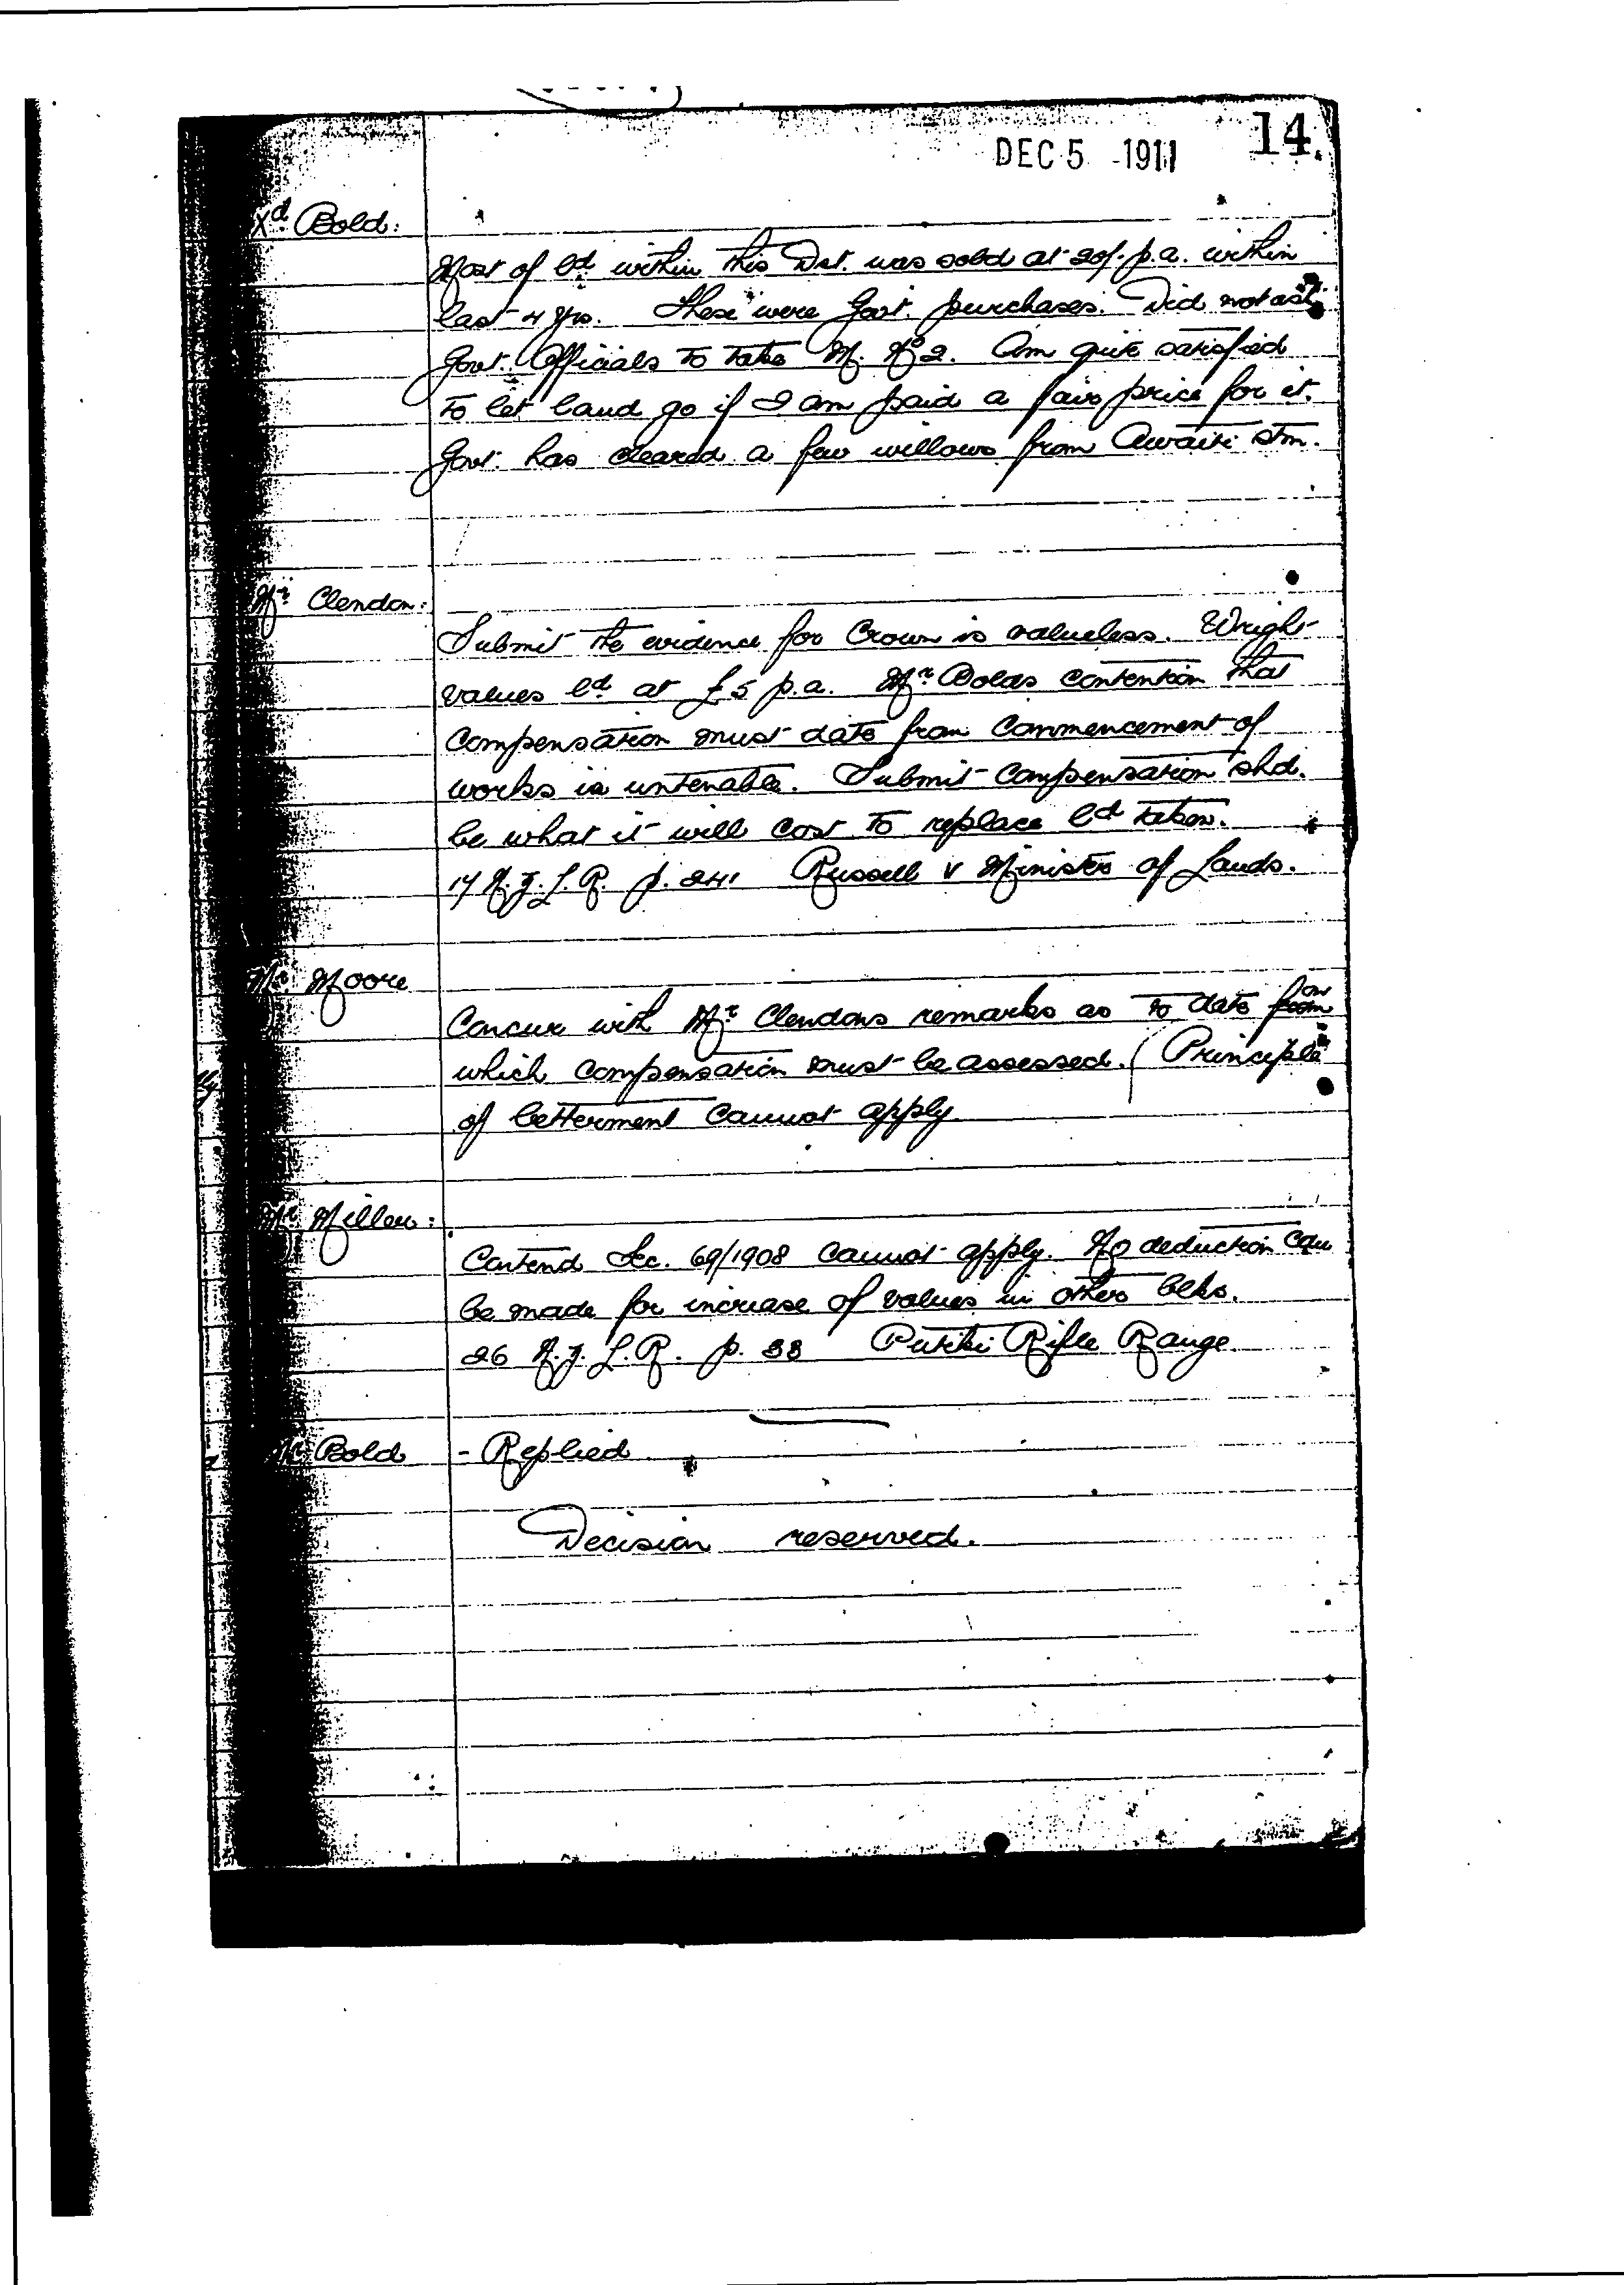 14.
DEC 5 1911
Xd Bold:
Most of ld within this Dst. was sold at 20/- p.a. within
last 4 yrs. These were Govt. purchases. Did not ask
Govt. Officials to take M. No 2. Am quite satisfied
to let land go if I am paid a fair price for it.
Govt. has cleared a few willows from Awaiti stm.
Mr Clendon:
Submit the evidence for Crown is valueless. Wright
values ld at £5 p.a. Mr Bolds contention that
compensation must date from commencement of
works is untenable. Submit compensation shd.
be what it will cost to replace ld taken.
17 N.Z.L.R. p. 241 Russell v Minister of Lands.
Mr Moore
Concur with Mr Clendons remarks as to date from
which compensation must be assessed. (Principle
of betterment cannot apply
Mr Miller:
Contend Sec. 69/1908 cannot apply. No deduction can
be made for increase of values in other blks.
26 N.Z.L.R. p. 38 Putiki Rifle Range.
Mr Bold - Replied.
Decision reserved.